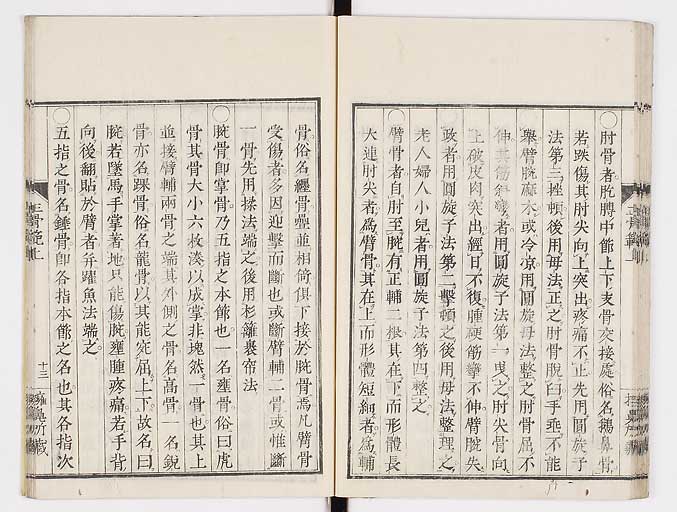 ○肘骨者肐膊中節上下支骨交接處俗名鵝鼻骨
若跌傷其肘尖向上突出疼痛不止先用圓旋子
法第三挫頓後用母法正之肘骨脫臼手垂不能
舉臂腕麻木或冷凉用圓旋母法整之肘骨屈不
伸其筋斜彎者用圓旋子法第一曳之肘尖骨向
上破皮肉突出經日不復腫硬筋攣不伸臂腕失
政者用圓旋子法第二擊頓之後用母法整理之
老人婦人小兒者用圓旋子法第四整之
○臂骨者自肘至腕有正輔二根其在下而形體長
大連肘尖者爲臂骨其在上而形體短細者爲輔
骨俗名纏骨疊並相倚俱下接於腕骨焉凡臂骨
受傷者多因迎擊而斷也或斷臂輔二骨或惟斷
一骨先用揉法端之後用杉籬裹帘法
○腕骨卽掌骨乃五指之本節也一名壅骨俗曰虎
骨其骨大小六枚湊以成掌非塊然一骨也其上
並接臂輔兩骨之端其外側之骨名高骨一名銳
骨亦名踝骨俗名龍骨以其能宛屈上下故名曰
腕若墜馬手掌著地只能傷腕壅腫疼痛若手背
向後翻貼於臂者幷躍魚法端之
○五指之骨名錘骨卽各指本節之名也其各指次
正骨範上
十三